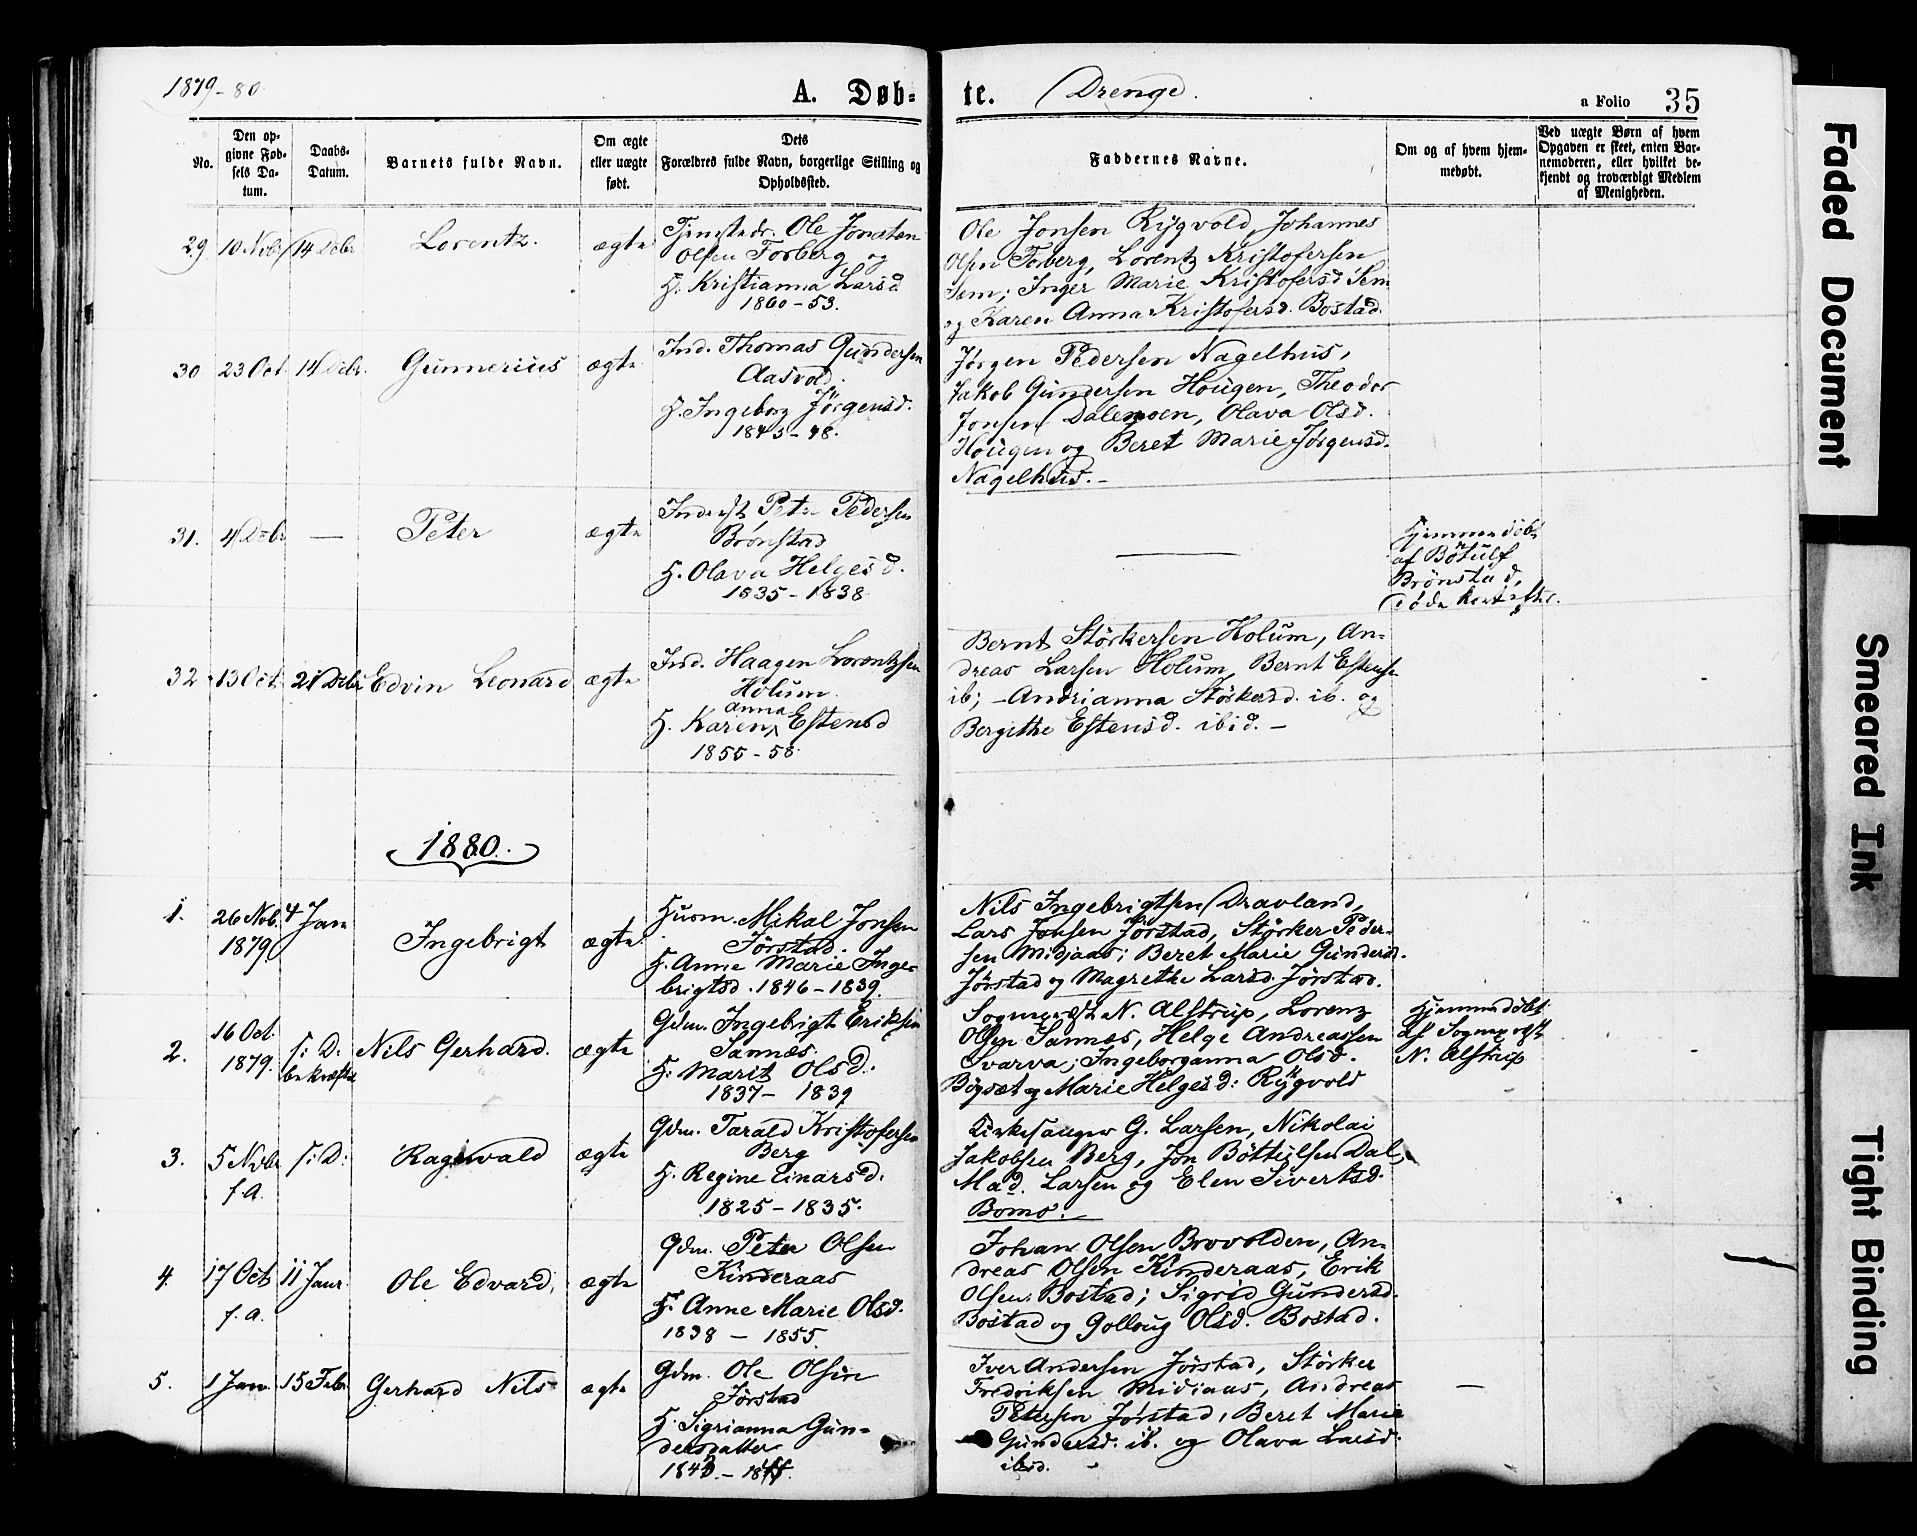 1879-80.
A. Døb-
te.
Drenge.
a Folio 35
No.
Den op-
givne Fød-
sels Da-
tum.
Daabs-
Datum.
Barnets fulde Navn.
Om ægte
eller uægte
født.
Dets
Forældres fulde Navn, borgerlige Stilling og
Opholdssted.
Faddernes Navne.
Om og af hvem hjem-
medøbt.
Ved uægte Børn af hvem
Opgaven er skeet, enten Bar-
nemoderen, eller hvilket be-
kjendt og troværdigt Medlem
af Menigheden.
29 10 Novbr 14 Dcbr Lorentz. ægte
Ole Jonatan
Olsen Forberg og
H. Kristianna Larsd
1860-53.
Ole Jonsen Rygvold, Johannes
Olsen Forberg, Lorentz Kristofersen
Sem; Inger Marie Kristofersd Sem
og Karen Anna Kristofersd. Bostad.
30 23 Oct. 14 Dcbr. Gunnerius ægte
Ind. Thomas Gundersen
Aasvold.
H. Ingeborg Jørgensd.
1843-48.
Jørgen Pedersen Nagelhus,
Jakob Gundersen Hougen, Theodor
Jonsen Dalemoen, Olava Olsd.
Hougen og Beret Marie Jørgensd.
Nagelhus.-
31. 4 Dcbr — Peter ægte
Inderst Peter Pedersen
Brønstad
H. Olava Helgesd.
1835-1838
—
Hjemmedøbt
af Botulf
Brønstad,
døde kort efter.
32 13 Oct. 21 Dcbr Edvin Leonard ægte
Ind. Haagen Lorentzsen
Holum.
anna
H. Karen Estensd
1855-58
Bernt Størkersen Holum, An-
dreas Larsen Holum, Bernt Estensen
ib; - Andrianna Størkersd. ib. og
Bergithe Estensd. ibid. -
1880.
1. 26 Nob. 4 Jan
1879 Ingebrigt ægte
Husm. Mikal Jonsen
Jørstad.
H. Anne Marie Inge-
brigtsd. 1846-1839.
Nils Ingebrigtsen Dravland,
Lars Jonsen Jørstad, Størker Peder-
sen Midjaas; Beret Marie Gundersd.
Jørstad og Magrethe Larsd. Jørstad.
2. 16 Oct
1879. s: D.
bekræftet Nils Gerhard. ægte
Gdm. Ingebrigt Eriksen
Sannæs.
H: Marit Olsd.
1837- 1839
Sogneprest N. Alstrup, Lorenz
Olsen Sannæs, Helge Andreassen
Svarva; Ingeborganna Olsd.
Bøgsæt og Marie Helgesd: Rygvold
Hjemmedøbt
af Sognepræst
N. Alstrup
3. 5 Nvbr
f. A. s: D: Ragnvald ægte
Gdm. Tarald Kristofersen
Berg
H. Regine Einarsd.
1825-1835.
Kirkesanger G. Larsen, Nikolai
Jakobsen Berg, Jon Bottulsen Dal,
Mad. Larsen og Elen Sivertsd.
Bomo.
4. 17 Oct
f. a. 11 Janr Ole Edvard. ægte
Gdm. Peter Olsen
Kinderaas
H. Anne Marie Olsd.
1838 - 1855
Johan Olsen Brovolden, An-
dreas Olsen Kinderaas, Erik
Olsen Bostad; Sigrid Gundersd.
Bostad og Gollaug Olsd. Bostad.
5. 1 Jan. 15 Febr Gerhard Nils ægte
Gdm. Ole Olsen
Jørstad
H. Sigrianna Gun-
dersdatter
Iver Andersen Jørstad, Størker
Fredriksen Midjaas, Andreas
Petersen Jørstad, Beret Marie
Gundersd. ib. og Olava Larsd.
ibid.
—
Faded Document
Smeared Ink
Tight Binding